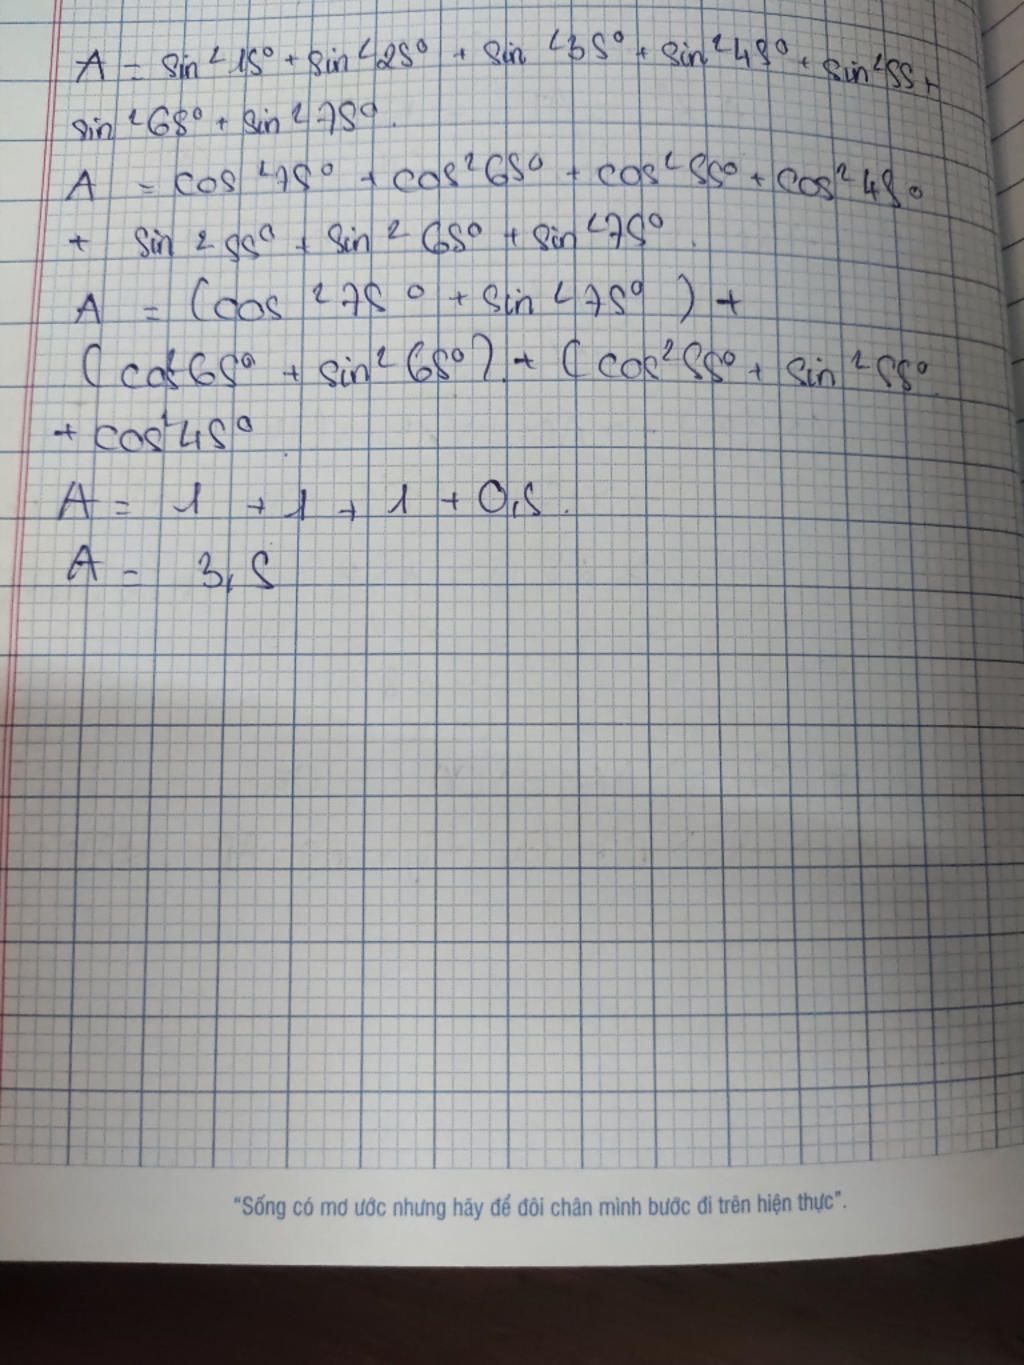 A = sin²15° + sin²25° + sin²35° + sin²45° + sin²55 +
sin²65° + sin²75°.
A = cos²75° + cos²65° + cos²55° + cos²45°
+ sin²55° + sin²65° + sin²75°.
A = (cos²75° + sin²75°) +
(cos²65° + sin²65°) + (cos²55° + sin²55°
+ cos²45°
A = 1 + 1 + 1 + 0,5.
A = 3,5
"Sống có mơ ước nhưng hãy để đôi chân mình bước đi trên hiện thực".